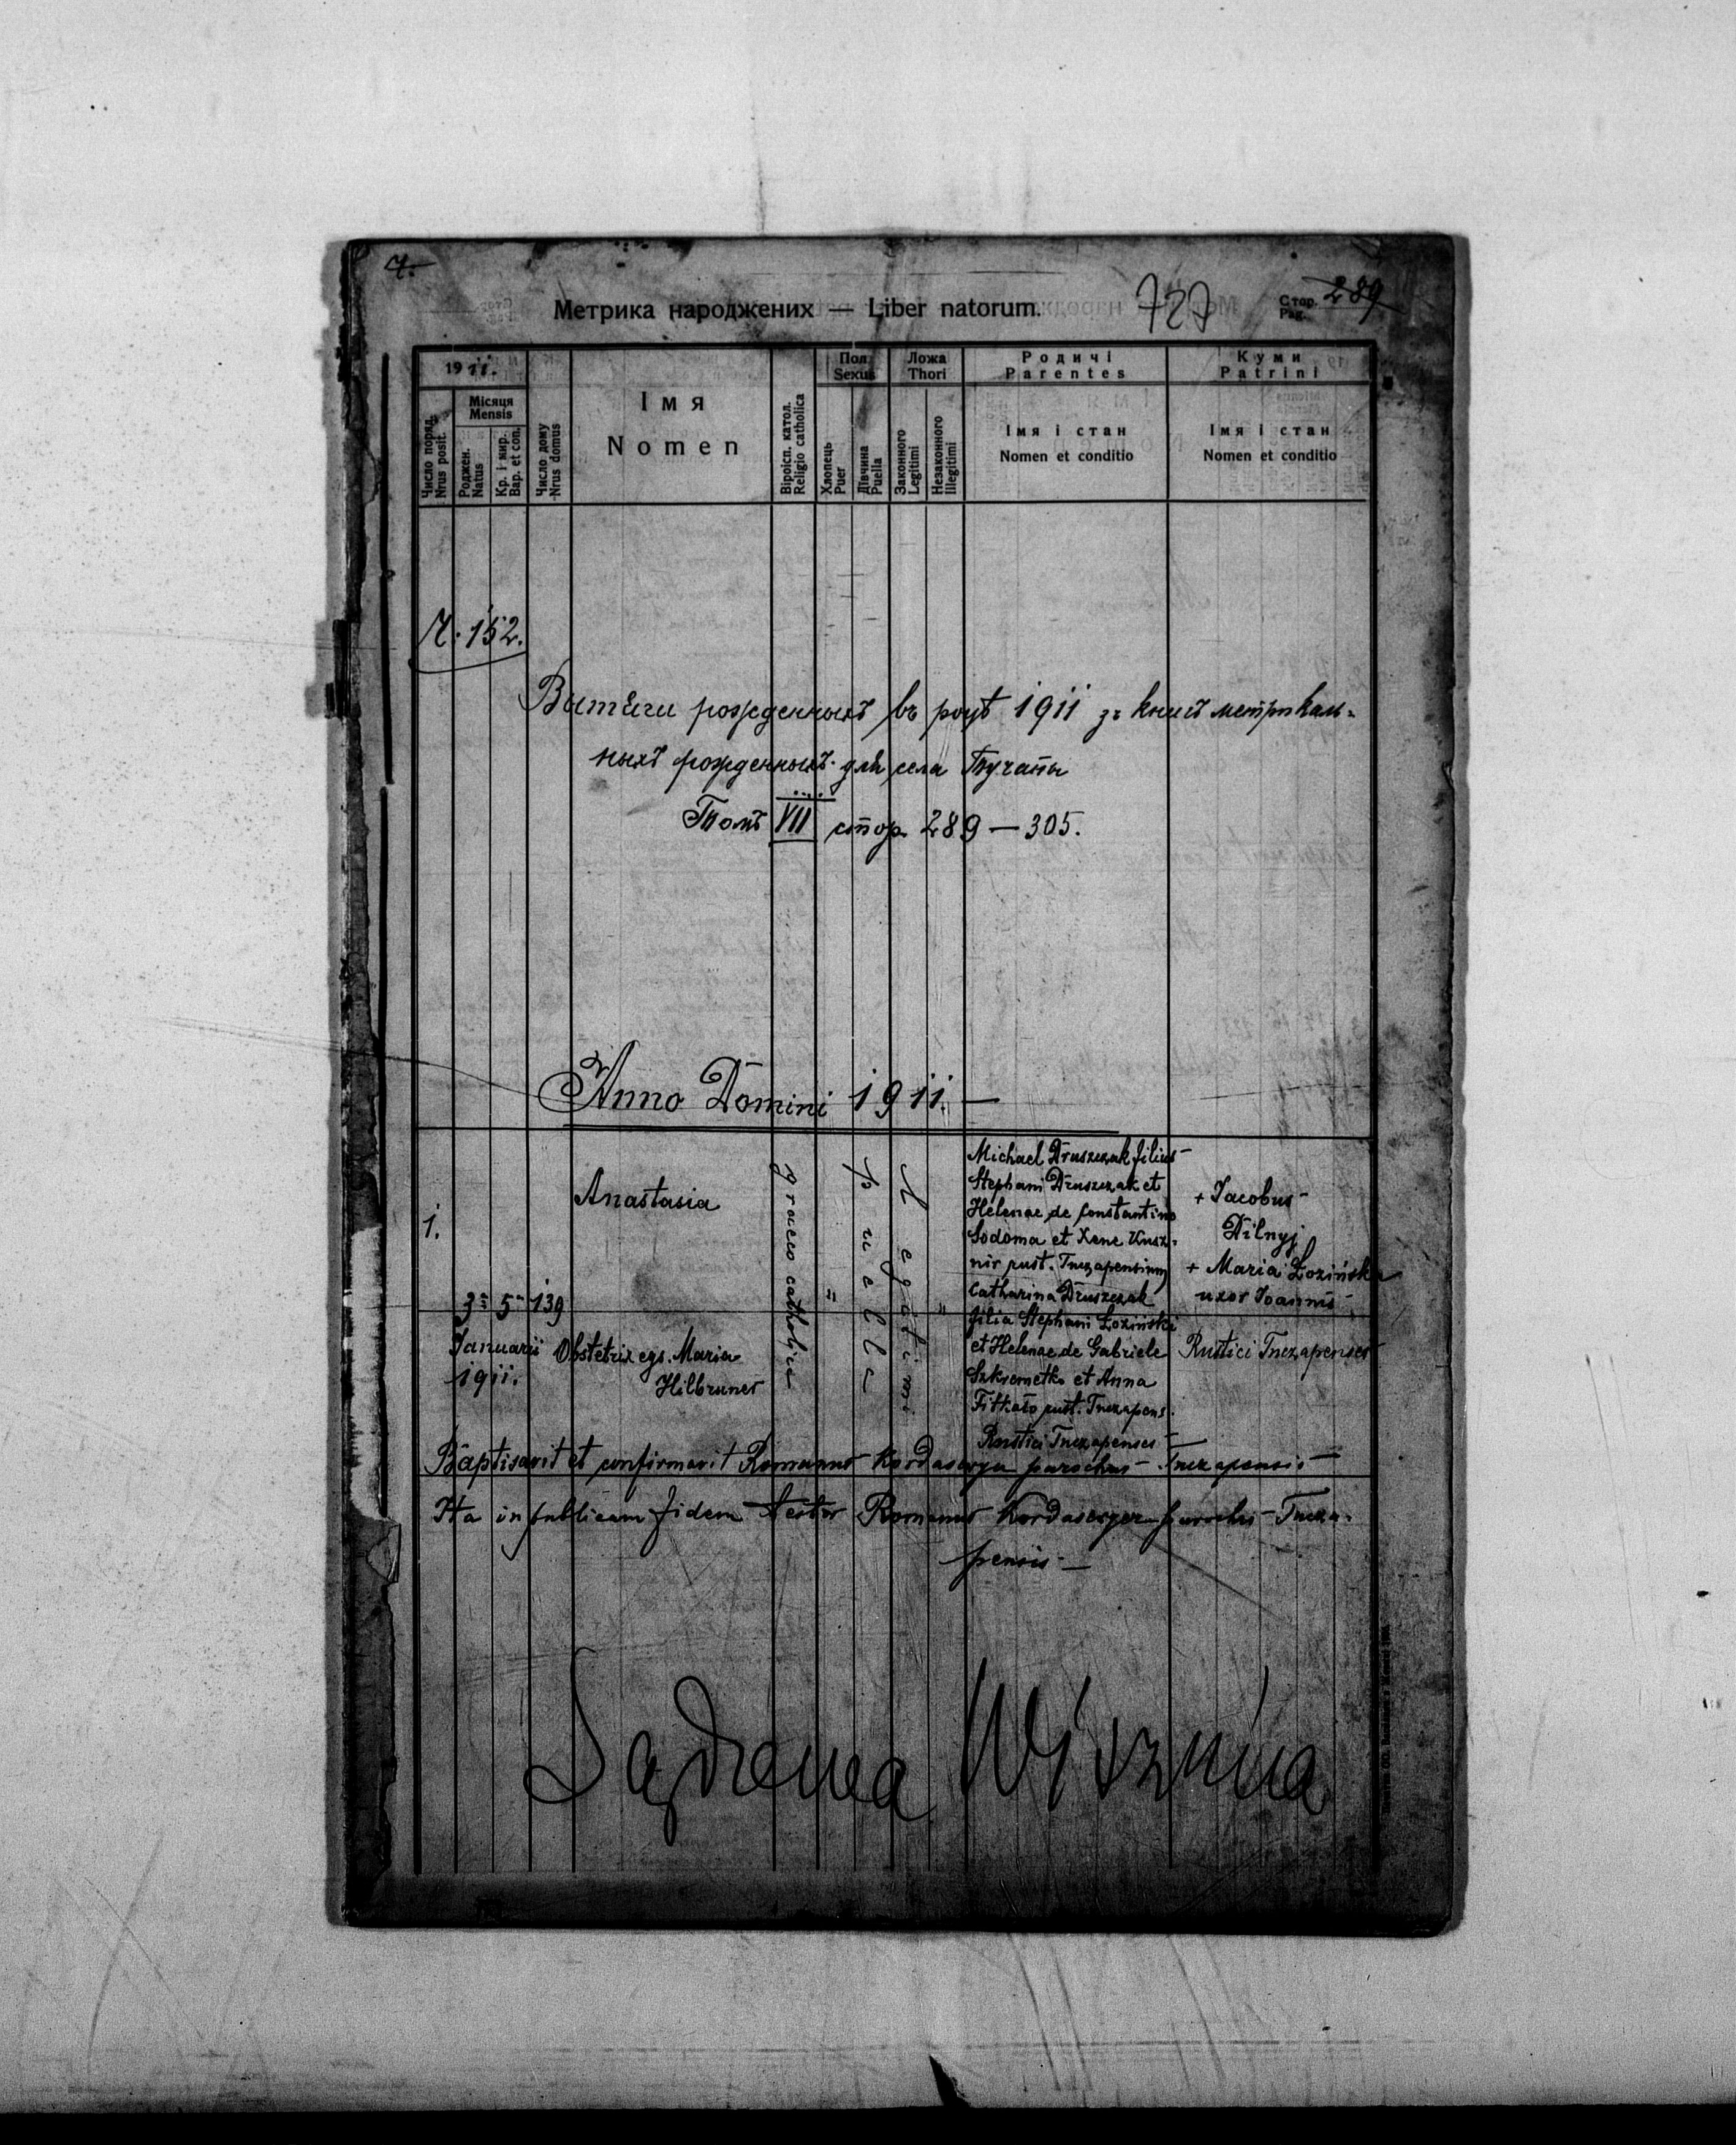 7.
Метрика народжених — Liber natorum.
727
Стор. 289
Pag.
1911.
Число поряд.
Nrus posit.
Місяця
Mensis
Роджен.
Natus
Кр. і мир.
Bap. et con.
Число дому
Nrus domus
Імя
Nomen
Віроісп. катол.
Religio catholica
Пол
Sexus
Хлопець
Puer
Дівчина
Puella
Ложа
Thori
Законного
Legitimi
Незаконного
Illegitimi
Родичі
Parentes
Імя і стан
Nomen et conditio
Куми
Patrini
Імя і стан
Nomen et conditio
Ч. 152.
Вытяги рожденныхъ въ роцѣ 1911 зъ книгъ метрикаль-
ныхъ рожденныхъ для села Тучапы
Томъ VII стор 289 — 305.
Anno Domini 1911. —
1.
3 5 139
Januarii
1911.
Anastasia
Obstetrix egs. Maria
Hilbruner
graeco catholica
"
puella
Legitimi
"
Michael Druszczak filius
Stephani Druszczak et
Helenae de Constantino
Sodoma et Xene Kusz-
nir rust. Tuczapensium
Catharina Druszczak
filia Stephani Łoziński
et Helenae de Gabriele
Szkremetko et Anna
Fitkało rust. Tuczapens.
Rustici Tuczapenses —
+ Jacobus
Dilnyj
+ Maria Łozińska
uxor Joannis
Rustici Tuczapenses
Baptisavit et confirmavit Romanus Kordasewycz parochus Tuczapensis —
Ita in publicam fidem testor Romanus Kordasewycz parochus Tucza-
pensis —
Sądowa Wisznia